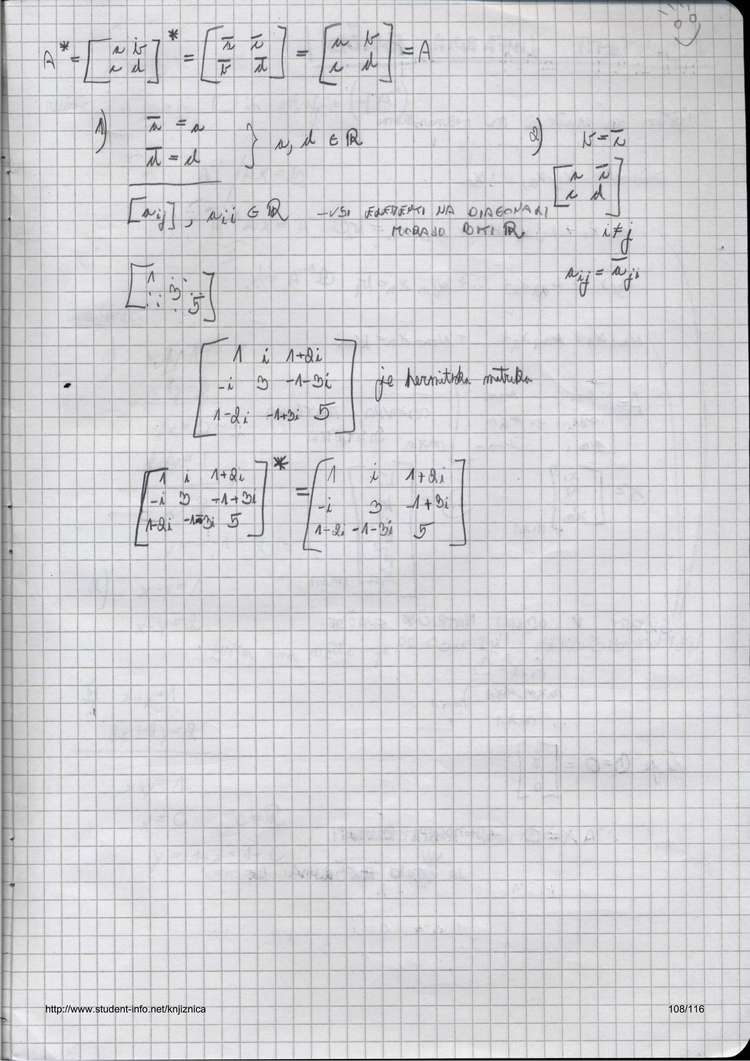 A* = [a b; c d]* = [a̅ c̅; b̅ d̅] = [a b; c d] = A
1) a̅ = a
d̅ = d } a, d ∈ ℝ
2) b = c̅
[a c̅; c d]
[a_ij], a_ii ∈ ℝ - VSI ELEMENTI NA DIAGONALI
MORAJO BITI ℝ
i ≠ j
a_ij = a̅_ji
[1 3 5]
[1 i 1+2i
-i 3 -1-3i
1-2i -1+3i 5] je hermitska matrika
[1 i 1+2i
-i 3 -1+3i
1-2i -1-3i 5]* = [1 i 1+2i
-i 3 -1+3i
1-2i -1-3i 5]
http://www.student-info.net/knjiznica
108/116